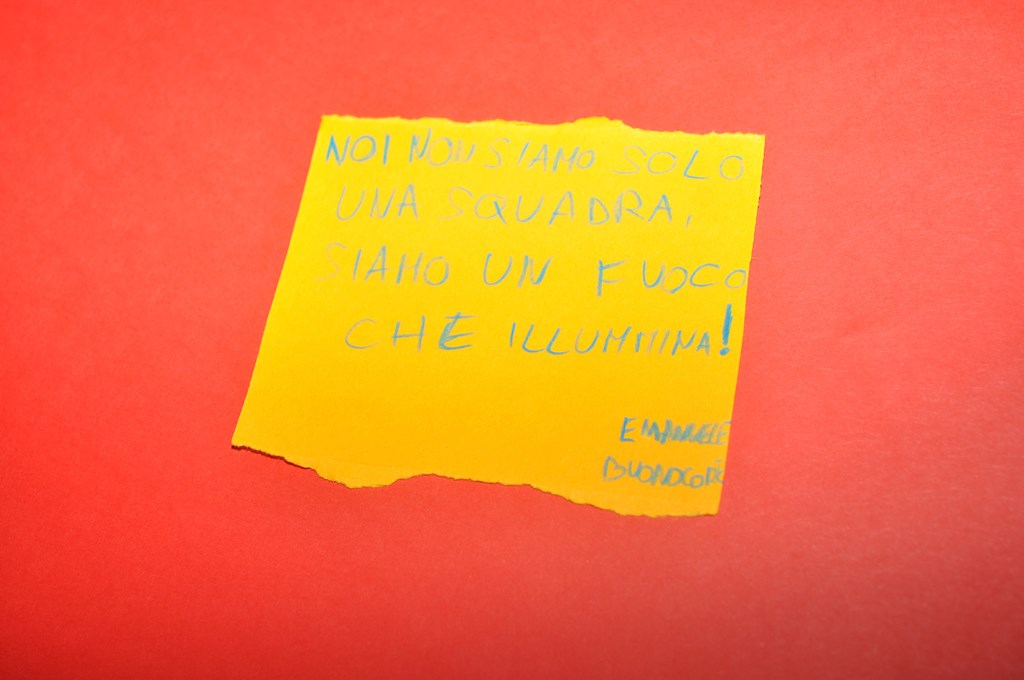 NOI NON SIAMO SOLO
UNA SQUADRA,
SIAMO UN FUOCO
CHE ILLUMINA!
EMANUELE
BUONOCORE